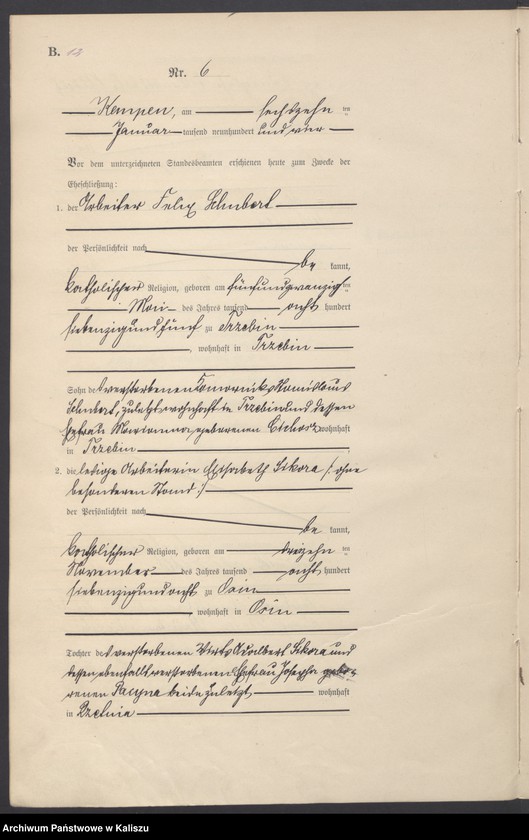 B.
Nr. 6
Kempen, am sechszehn ten
Januar tausend neunhundert und vier
Vor dem unterzeichneten Standesbeamten erschienen heute zum Zwecke der
Eheschließung:
1. der Arbeiter Felix
der Persönlichkeit nach
be kannt,
katholischer Religion, geboren am fünfundzwanzig ten
Mai des Jahres tausend acht hundert
siebenzigundfünf zu Trzebin
, wohnhaft in Trzebin
Sohn des verstorbenen Komorniks Stanislaus
zuletzt wohnhaft in Trzebin und dessen
Ehefrau Marianna, geborenen Cichosz wohnhaft
in Trzebin
2. die ledige Arbeiterin Elisabeth Sikora /: ohne
besonderen Stand :/
der Persönlichkeit nach
be kannt,
katholischer Religion, geboren am dreizehn ten
November des Jahres tausend acht hundert
siebenzigundacht zu Osin
wohnhaft in Osin
Tochter des verstorbenen Wirts Adalbert Sikora und
dessen ebenfalls verstorbenen Ehefrau Josepha gebo-
renen beide zuletzt wohnhaft
in Rzetnia
Archiwum Państwowe w Kaliszu